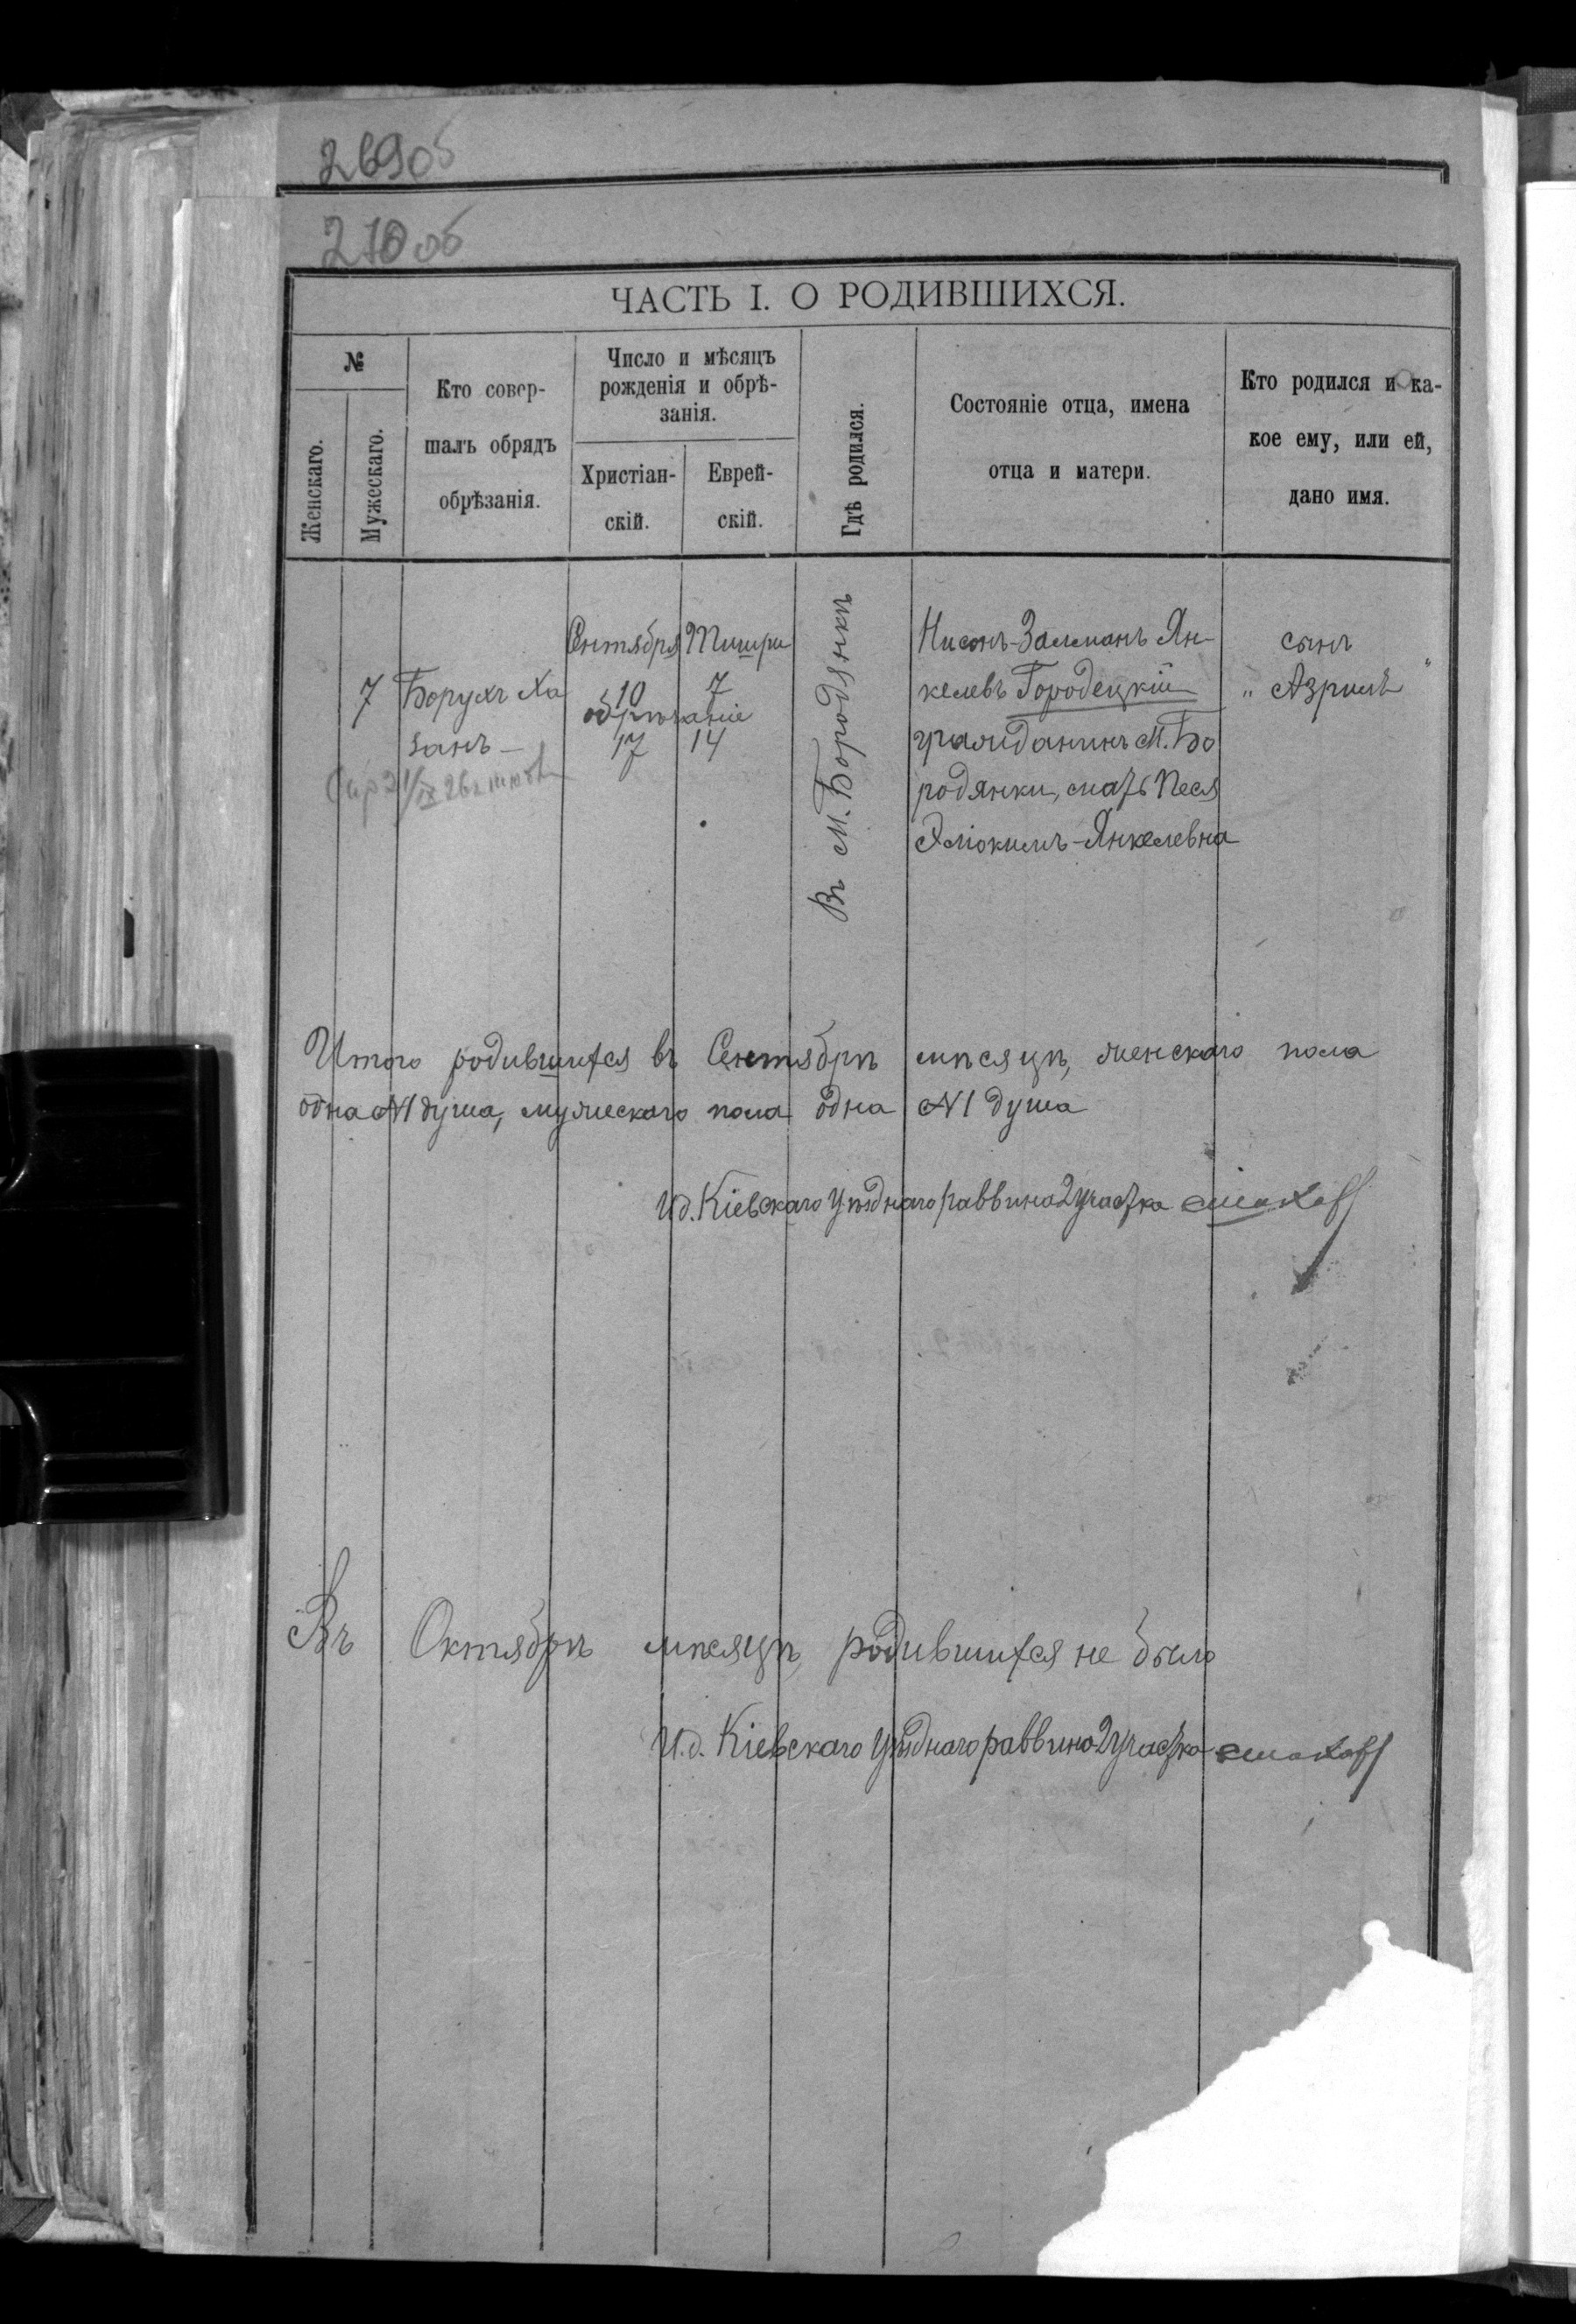 269об
270об
ЧАСТЬ I. О РОДИВШИХСЯ.
№
Женскаго.
Мужескаго.
Кто совер-
шалъ обрядъ
обрѣзанія.
Число и мѣсяцъ
рожденія и обрѣ-
занія.
Христіан-
скій.
Еврей-
скій.
Гдѣ родился.
Состояніе отца, имена
отца и матери.
Кто родился и ка-
кое ему, или ей,
дано имя.
7
Борухъ Ха
занъ —
Сентября
10
Тишри
7
обрѣзаніе
17 14
Въ М. Бородянкѣ
Нисонъ-Залманъ Ян-
келевъ Городецкій
гражданинъ М. Бо
родянки, мать Песя
Эліокимъ-Янкелевна
сынъ
„Азріилъ"
Итого родившихся въ Сентябрѣ мѣсяцѣ, женскаго пола
одна №1 душа, мужескаго пола одна №1 душа
И.д. Кіевскаго Уѣзднаго раввина 2 участка
Въ Октябрѣ мѣсяцѣ родившихся не было
И.д. Кіевскаго Уѣзднаго раввина 2 участка